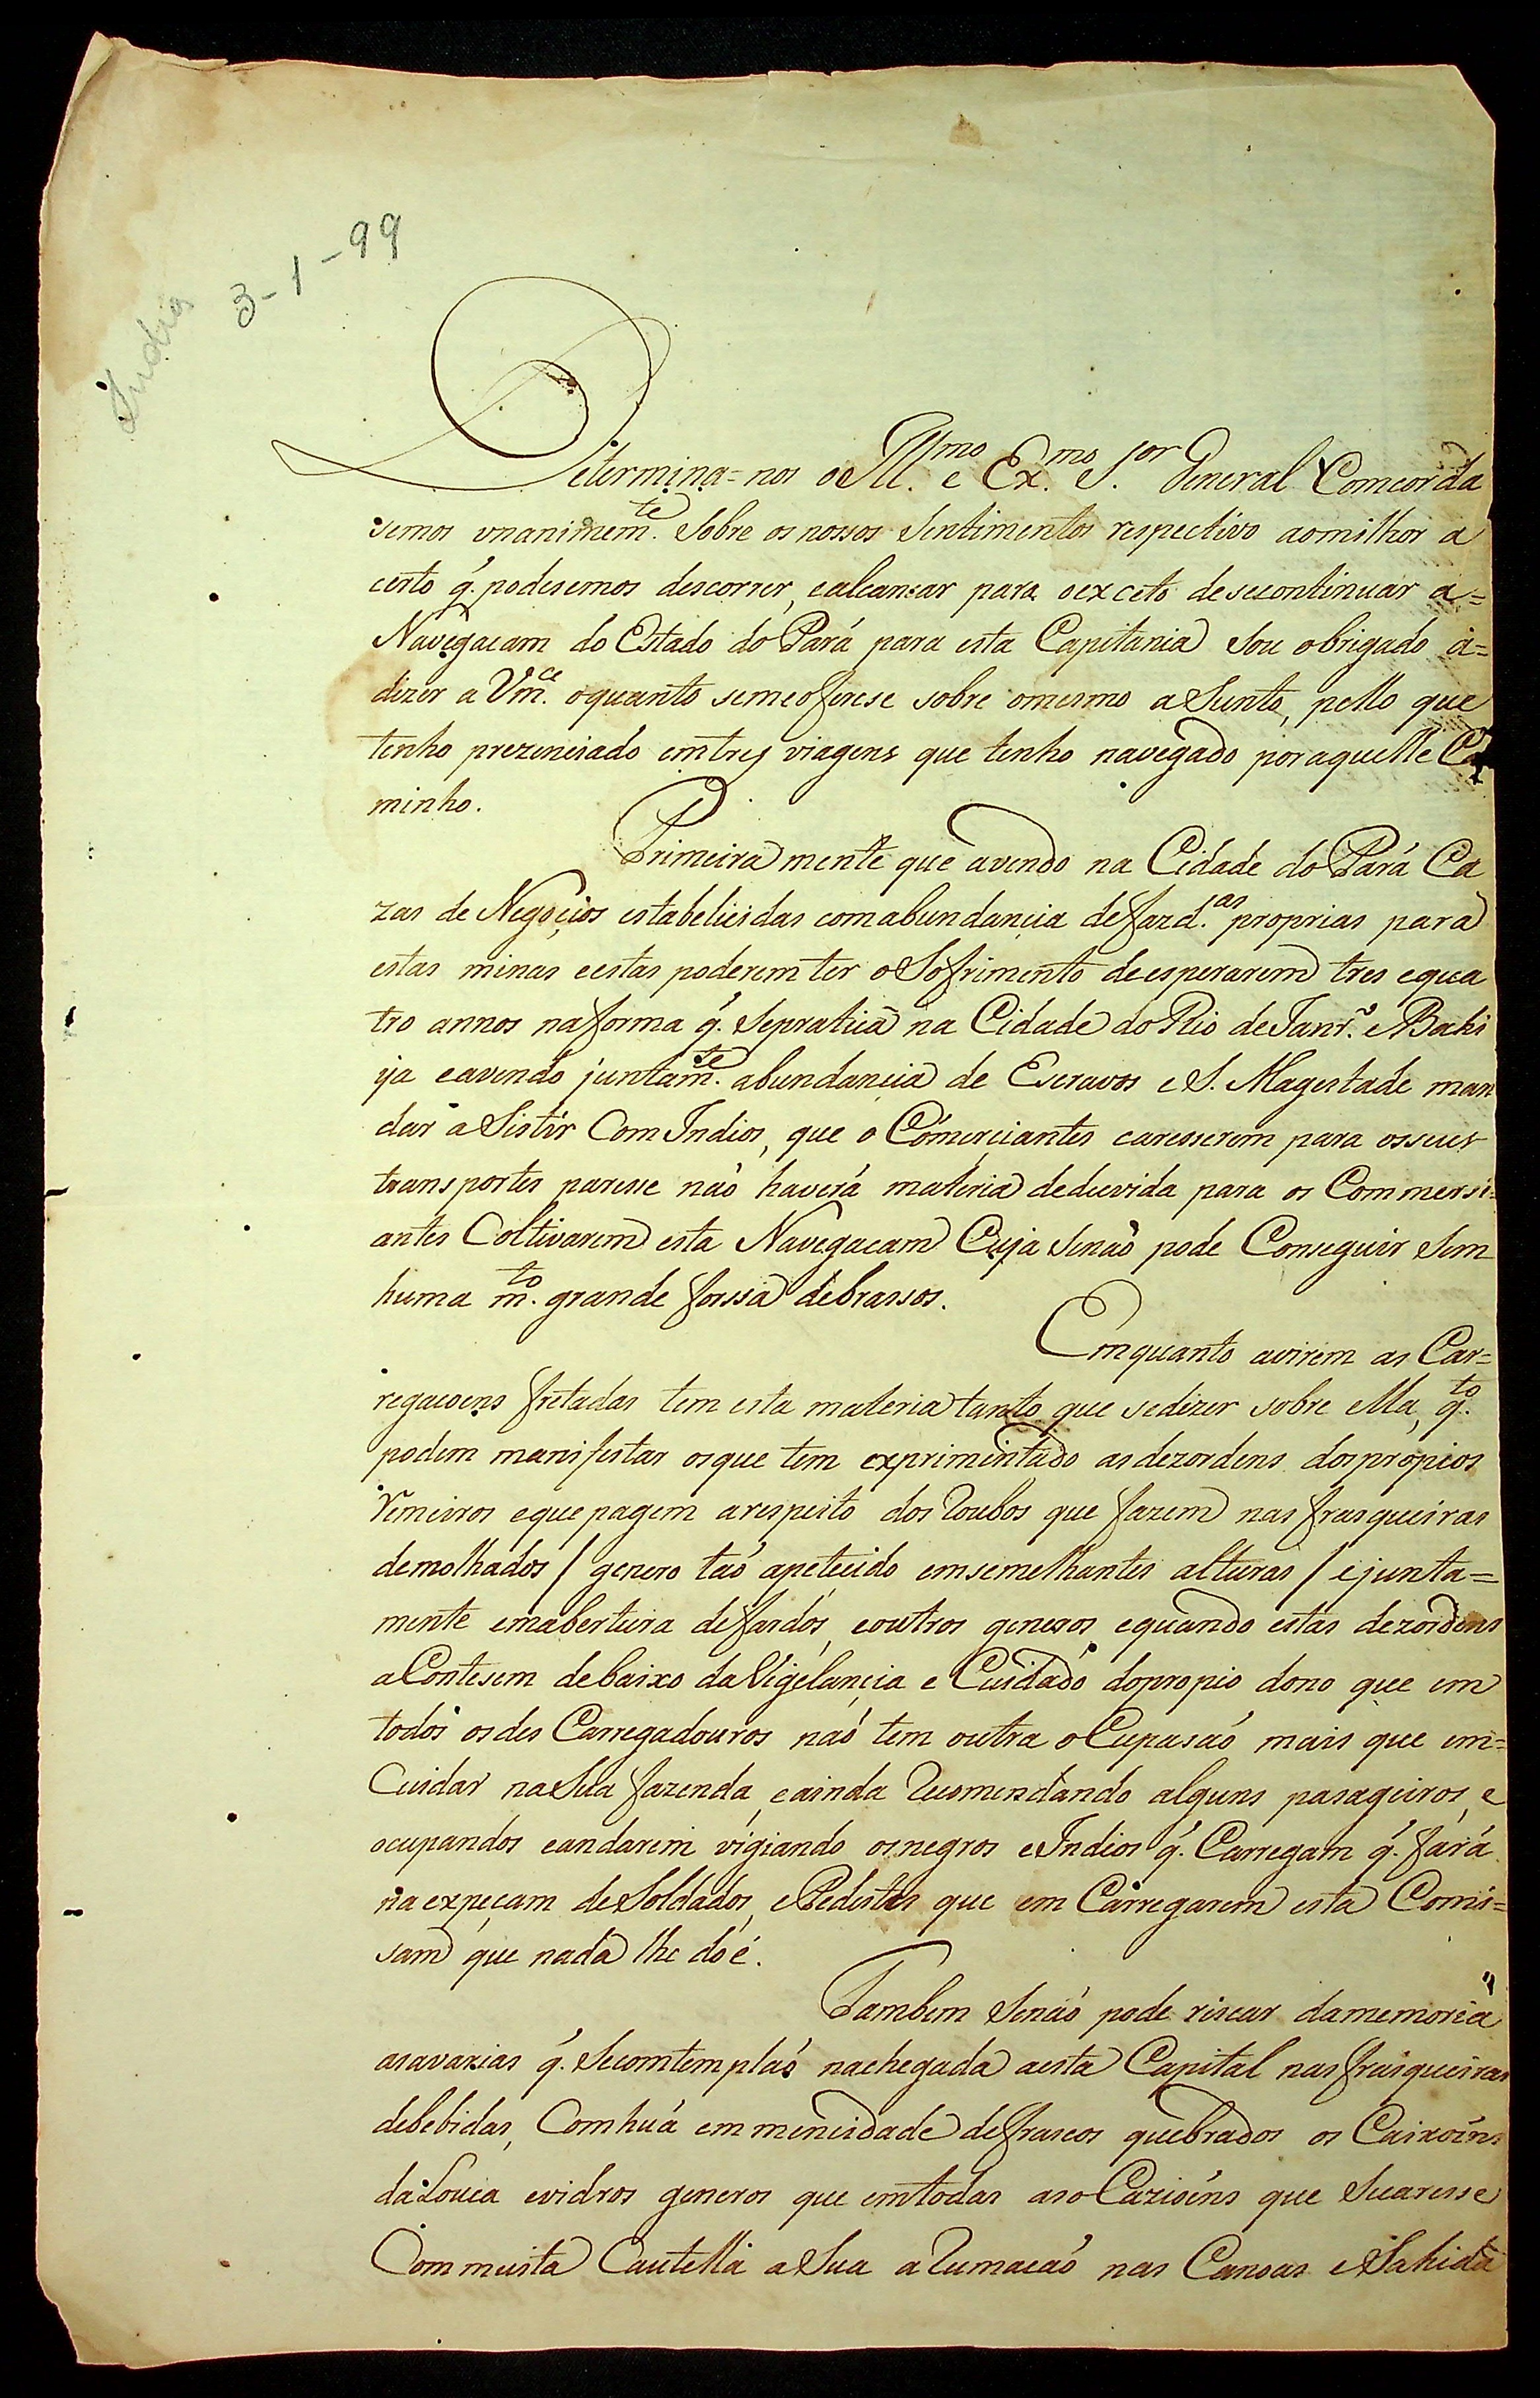 3-1-99
Indios
Determina=nos o Ill.mo e Ex.mo S.or General Comcorda
semos vnanimem.te sobre os nossos Sentimentos respectivo ao milhor a
certo q. podesemos descorrer, ealcansar para o exceto de se continuar a=
Navegacam do Estado do Pará para esta Capitania Sou obrigado á=
dizer a Vm.ce o quanto se me oferese sobre o mesmo a Sunto, pello que
tenho prezenciado em tres viagens que tenho navegado por aquelle Ca
minho.
Primeira mente que avendo na Cidade do Pará Ca
zas de Negocios estabelicidas com abundancia de fazd.as proprias para
estas minas e estas poderem ter o Sofrimento de esperarem tres e qua
tro annos na forma q. Se pratica na Cidade do Rio de Janr.o e Bahi
ya e avendo juntam.te abundancia de Escravos e S. Magestade man
dar a Sistir Com Indios, que o Cómerciantes caresserem para os seus
transportes paresse não haverá materia de duvida para os Commersi=
antes Coltivarem esta Navegacam Cuja Senão pode Conseguir Sem
huma m.to grande forssa de brassos.
Emquanto avirem as Car=
regacoens fretadas tem esta materia tanto que se dizer sobre ella, q.to
podem manifestar os que tem exprimintado as dezordens dos propios
Remeiros e que pagem a respeito dos Roubos que fazem nas frasqueiras
de molhados / genero tão apetecido em semelhantes alturas / e junta=
mente em abertura de fardos, e outros generos, e quando estas dezordens
a Contesem de baixo da Vigelancia e Cuidado do propio dono que em
todos os des Carregadouros não tem outra oCupasão mais que em=
Cuidar na Sua fazenda, e ainda Recomendando alguns pasageiros, e
ocupandos e andarem vigiando os negros e Indios q. Carregam q. fará
na expeçam de Soldados, e Pedestes que em Carregarem esta Comi=
sam que nada lhe dóe.
Tambem Senão pode riscar da memoria
as avarias q. Se comtemplão na chegada a esta Capital nas frasqueiras
de bebidas, Com huá emmencidade de frascos quebrados os Caixoins
da Louca e vidros generos que em todas as oCazioens que Se caresse
Com muita Cautella a Sua aRumacão nas Canoas e Sahida